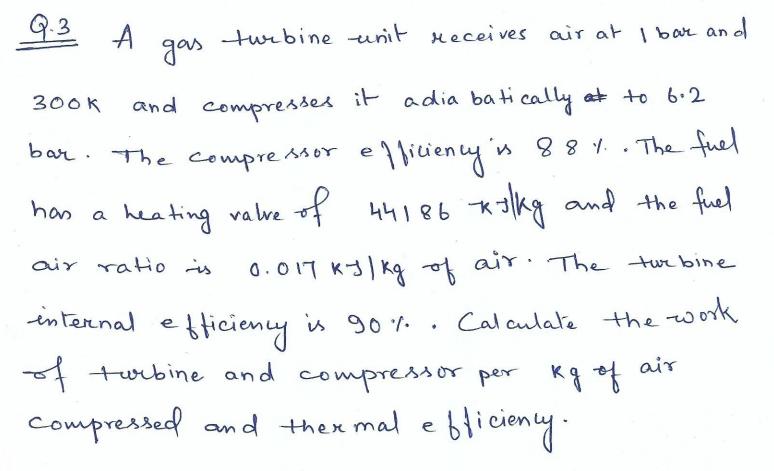 Q.3 A gas turbine unit receives air at 1 bar and
300K and compresses it adiabatically to 6.2
bar. The compressor efficiency is 88%. The fuel
has a heating valve of 44186 KJ/kg and the fuel
air ratio is 0.017 KJ/kg of air. The turbine
internal efficiency is 90%. Calculate the work
of turbine and compressor per kg of air
compressed and thermal efficiency.